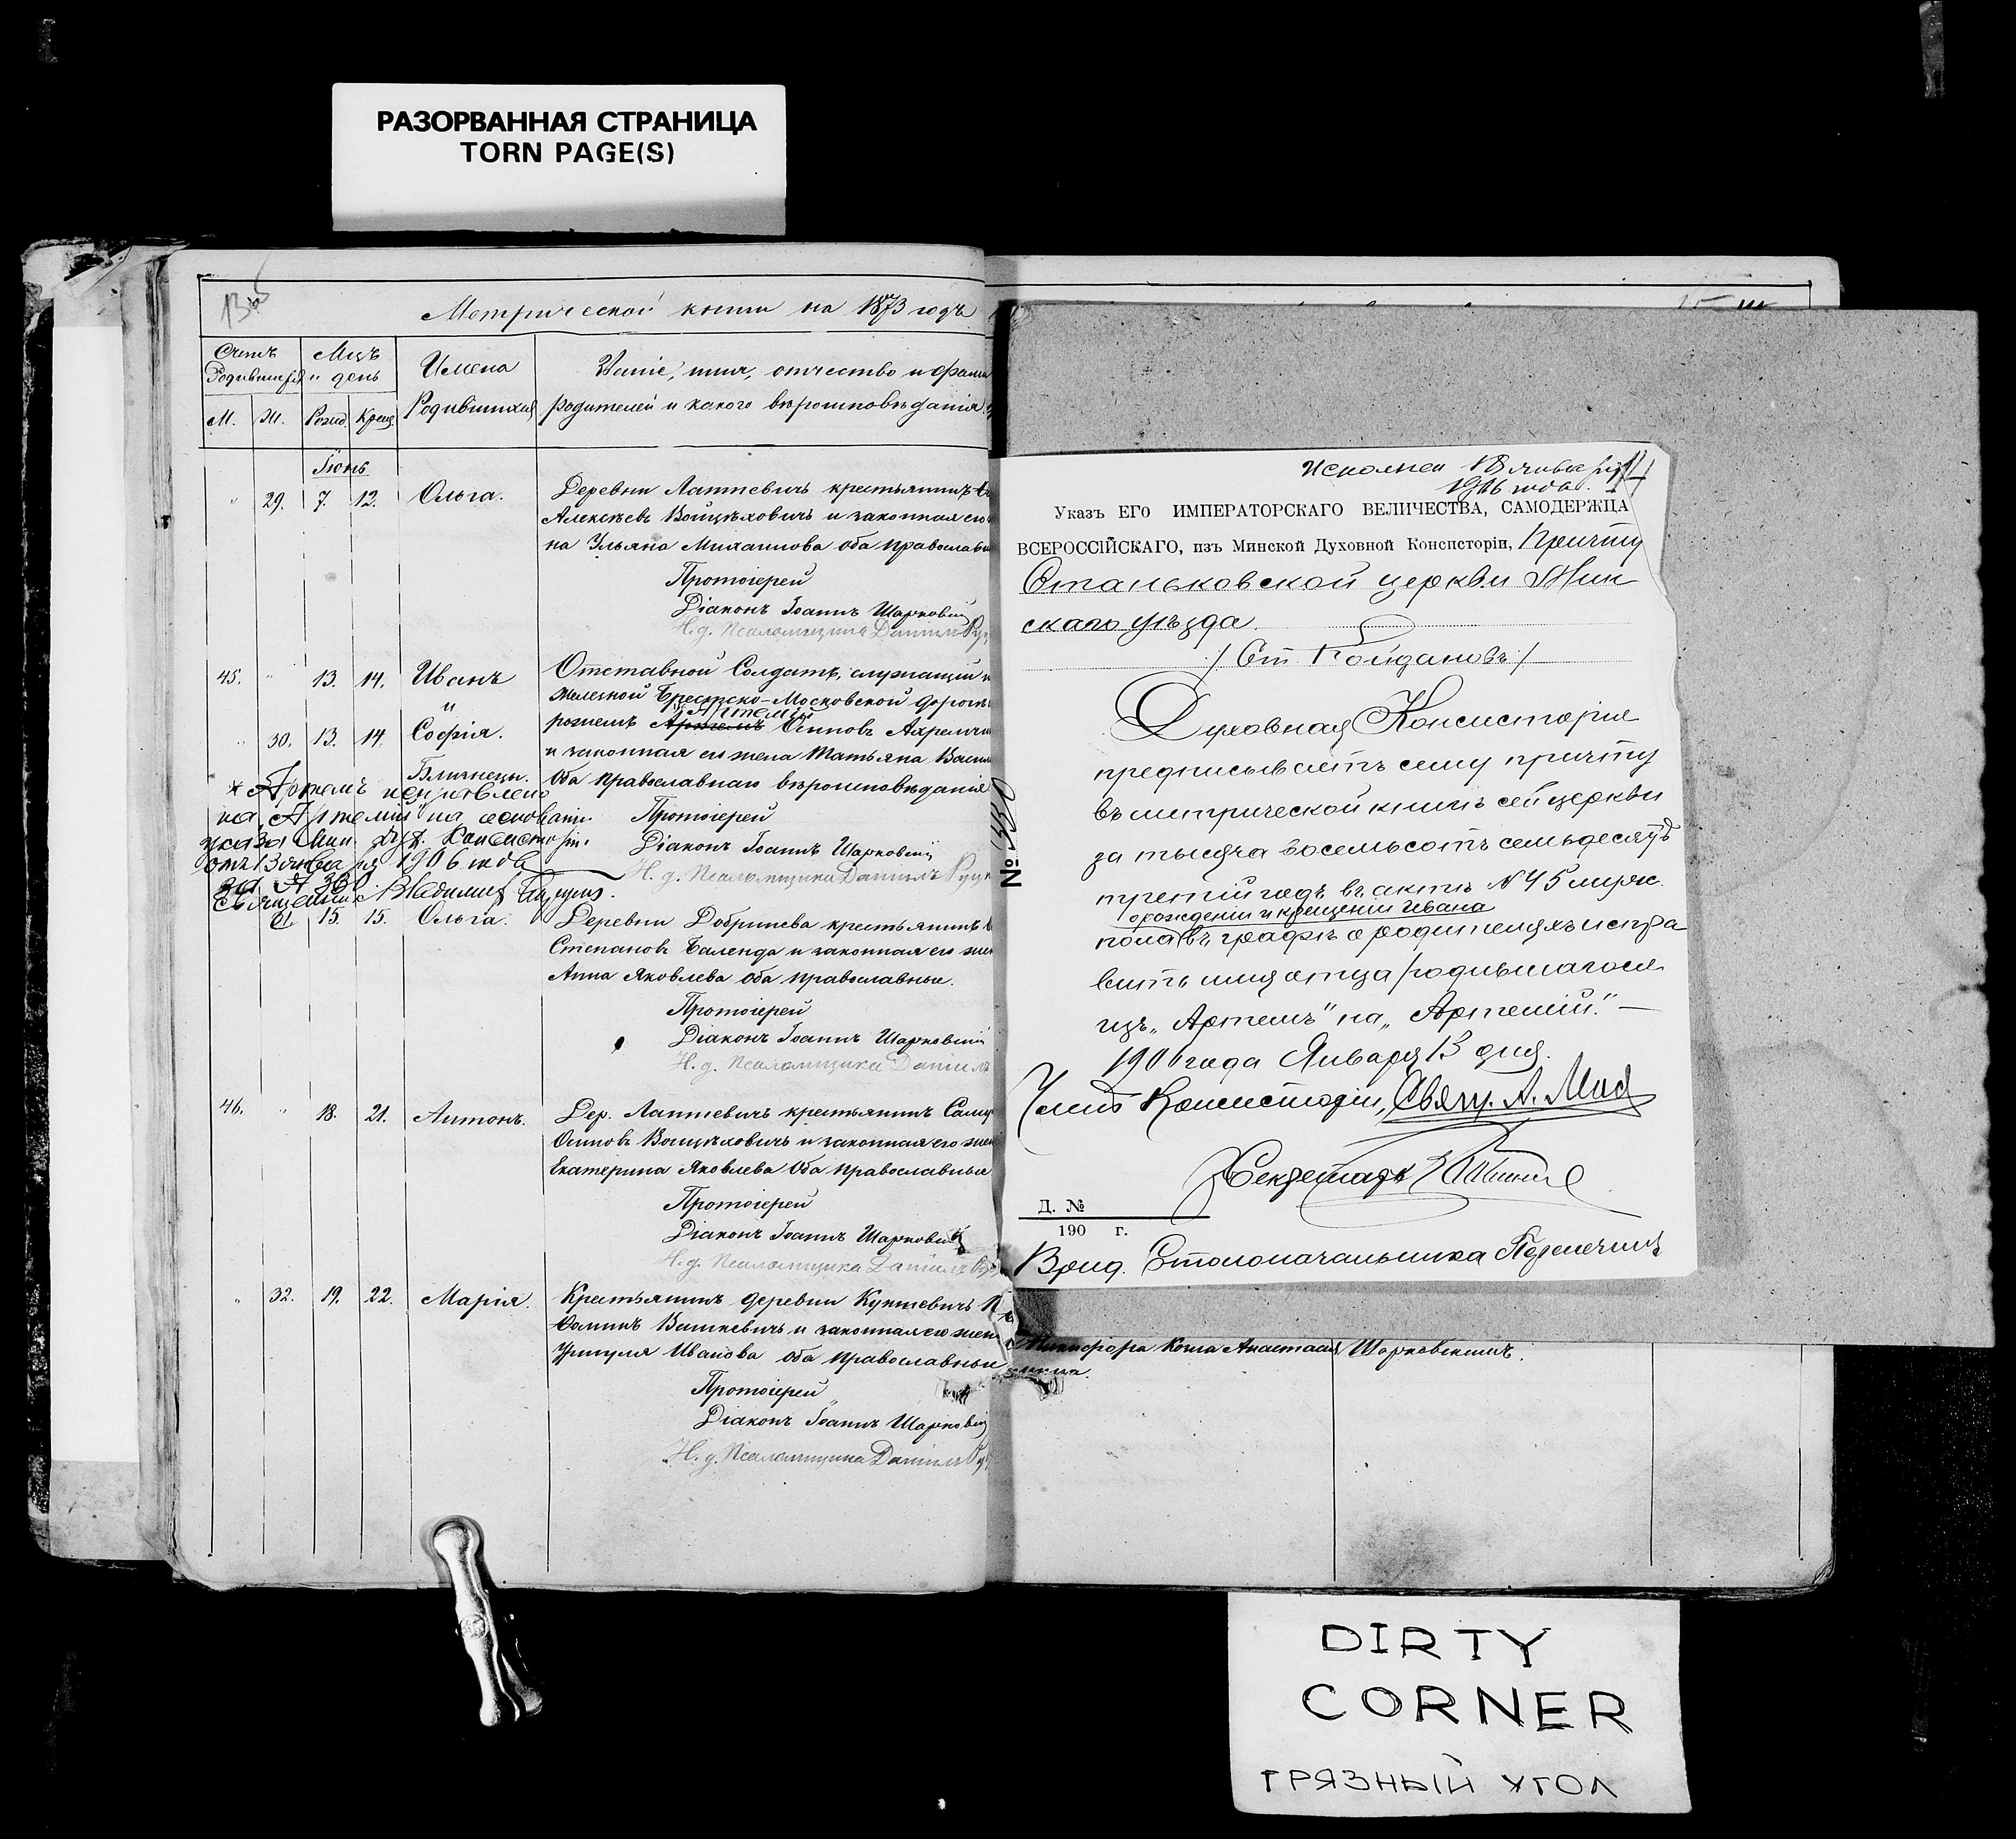 РАЗОРВАННАЯ СТРАНИЦА
TORN PAGE(S)
Метрической книги на 1873 годъ
Счетъ Родившихся
Мцъ и день
Имена Родившихся
Званіе, имя, отчество и фами
родителей и какого вѣроисповѣданія
М. Ж. Рожд. Крещ.
Іюнь
" 29. 7. 12. Ольга.
Деревни Лаппевичъ крестьянинъ
Алексѣевъ Войцѣховичъ и законная его
на Ульяна Михаилова оба православн
Протоіерей
Діаконъ Іоаннъ Шарковскій
Н. д. Псаломщика Даніилъ Руц
45. " 13. 14. Иванъ
и
" 30. 13. 14. Софія.
Близнецы.
Отставной Солдатъ, служащій
Желѣзной Брестско-Московской дорогѣ
Артемій
рожемъ Артемъ Осиповъ Ахремчи
и законная его жена Татьяна Васи
Оба православнаго вѣроисповѣданія
Протоіерей
Діаконъ Іоаннъ Шарковскій
Н. д. Псаломщика Даніилъ Руцк
* Артемъ исправлено
на Артемій на основаніи
указа Мин. Дух. Консисторіи
отъ 13 января 1906 года
за № 330
Священникъ Владимир
31. 15. 15. Ольга.
Деревни Добринева крестьянинъ
Степановъ Баленда и законная его жен
Анна Яковлева оба православные.
Протоіерей
Діаконъ Іоаннъ Шарковскій
Н. д. Псаломщика Даніилъ
46. " 18. 21. Антонъ.
Дер. Лаппевичъ крестьянинъ Саму
Осиповъ Войцѣховичъ и законная его жен
Екатерина Яковлева Оба православные
Протоіерей
Діаконъ Іоаннъ Шарковскій
Н. д. Псаломщика Даніилъ
" 32. 19. 22. Марія.
Крестьянинъ деревни Куккевичъ
Фоминъ Вашкевичъ и законная его жен
Уршуля Иванова оба православные
Протоіерей
Діаконъ Іоаннъ Шарковскій
Н. д. Псаломщика Даніилъ Ру
Исполнен 18 января
1906 года.
Указъ ЕГО ИМПЕРАТОРСКАГО ВЕЛИЧЕСТВА, САМОДЕРЖЦА
ВСЕРОССІЙСКАГО, изъ Минской Духовной Консисторіи, Причту
Станьковской церкви Мин
скаго уѣзда
/ Ст. Койдановъ /
№ 330
Духовная Консисторія
предписываетъ сему причту
въ метрической книгѣ сей церкви
за тысяча восемьсотъ семьдесятъ
третій годъ въ актѣ N 45 мужс.
о рожденіи и крещеніи Ивана
пола въ графѣ о родителяхъ испра
вить имя отца родившагося
изъ „Артемъ" на „Артемій". —
1906 года Января 13 дня.
Членъ Консисторіи, Свящ. А.
Секретарь
Д. №
190 г.
Врид. Столоначальника
Никифора Коша Анастасія Шарковскимъ.
DIRTY
CORNER
ГРЯЗНЫЙ УГОЛ